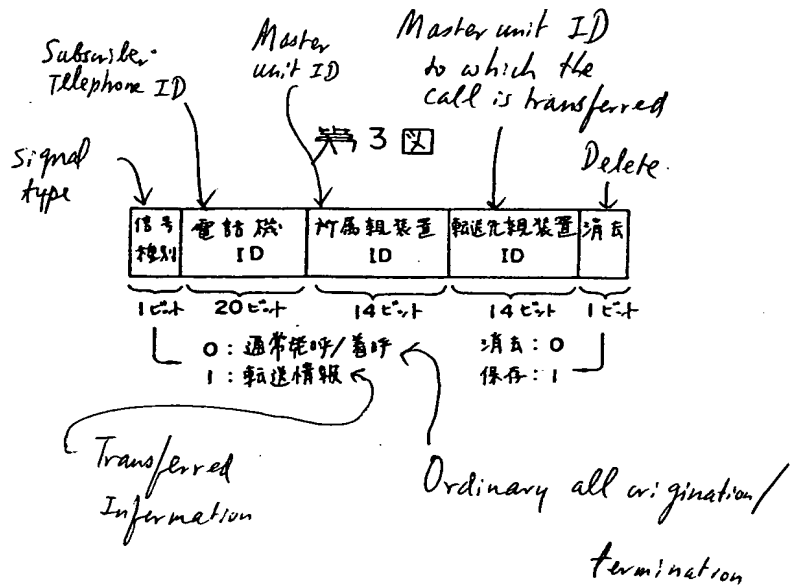 Subscriber
Telephone ID
Master
unit ID
Master unit ID
to which the
call is transferred
第3図
signal
type
Delete
信号
種別
電話機
ID
所属親装置
ID
転送先親装置
ID
消去
1ビット
20ビット
14ビット
14ビット
1ビット
0:通常発呼/着呼
1:転送情報
消去:0
保存:1
Transferred
Information
Ordinary all origination/
termination